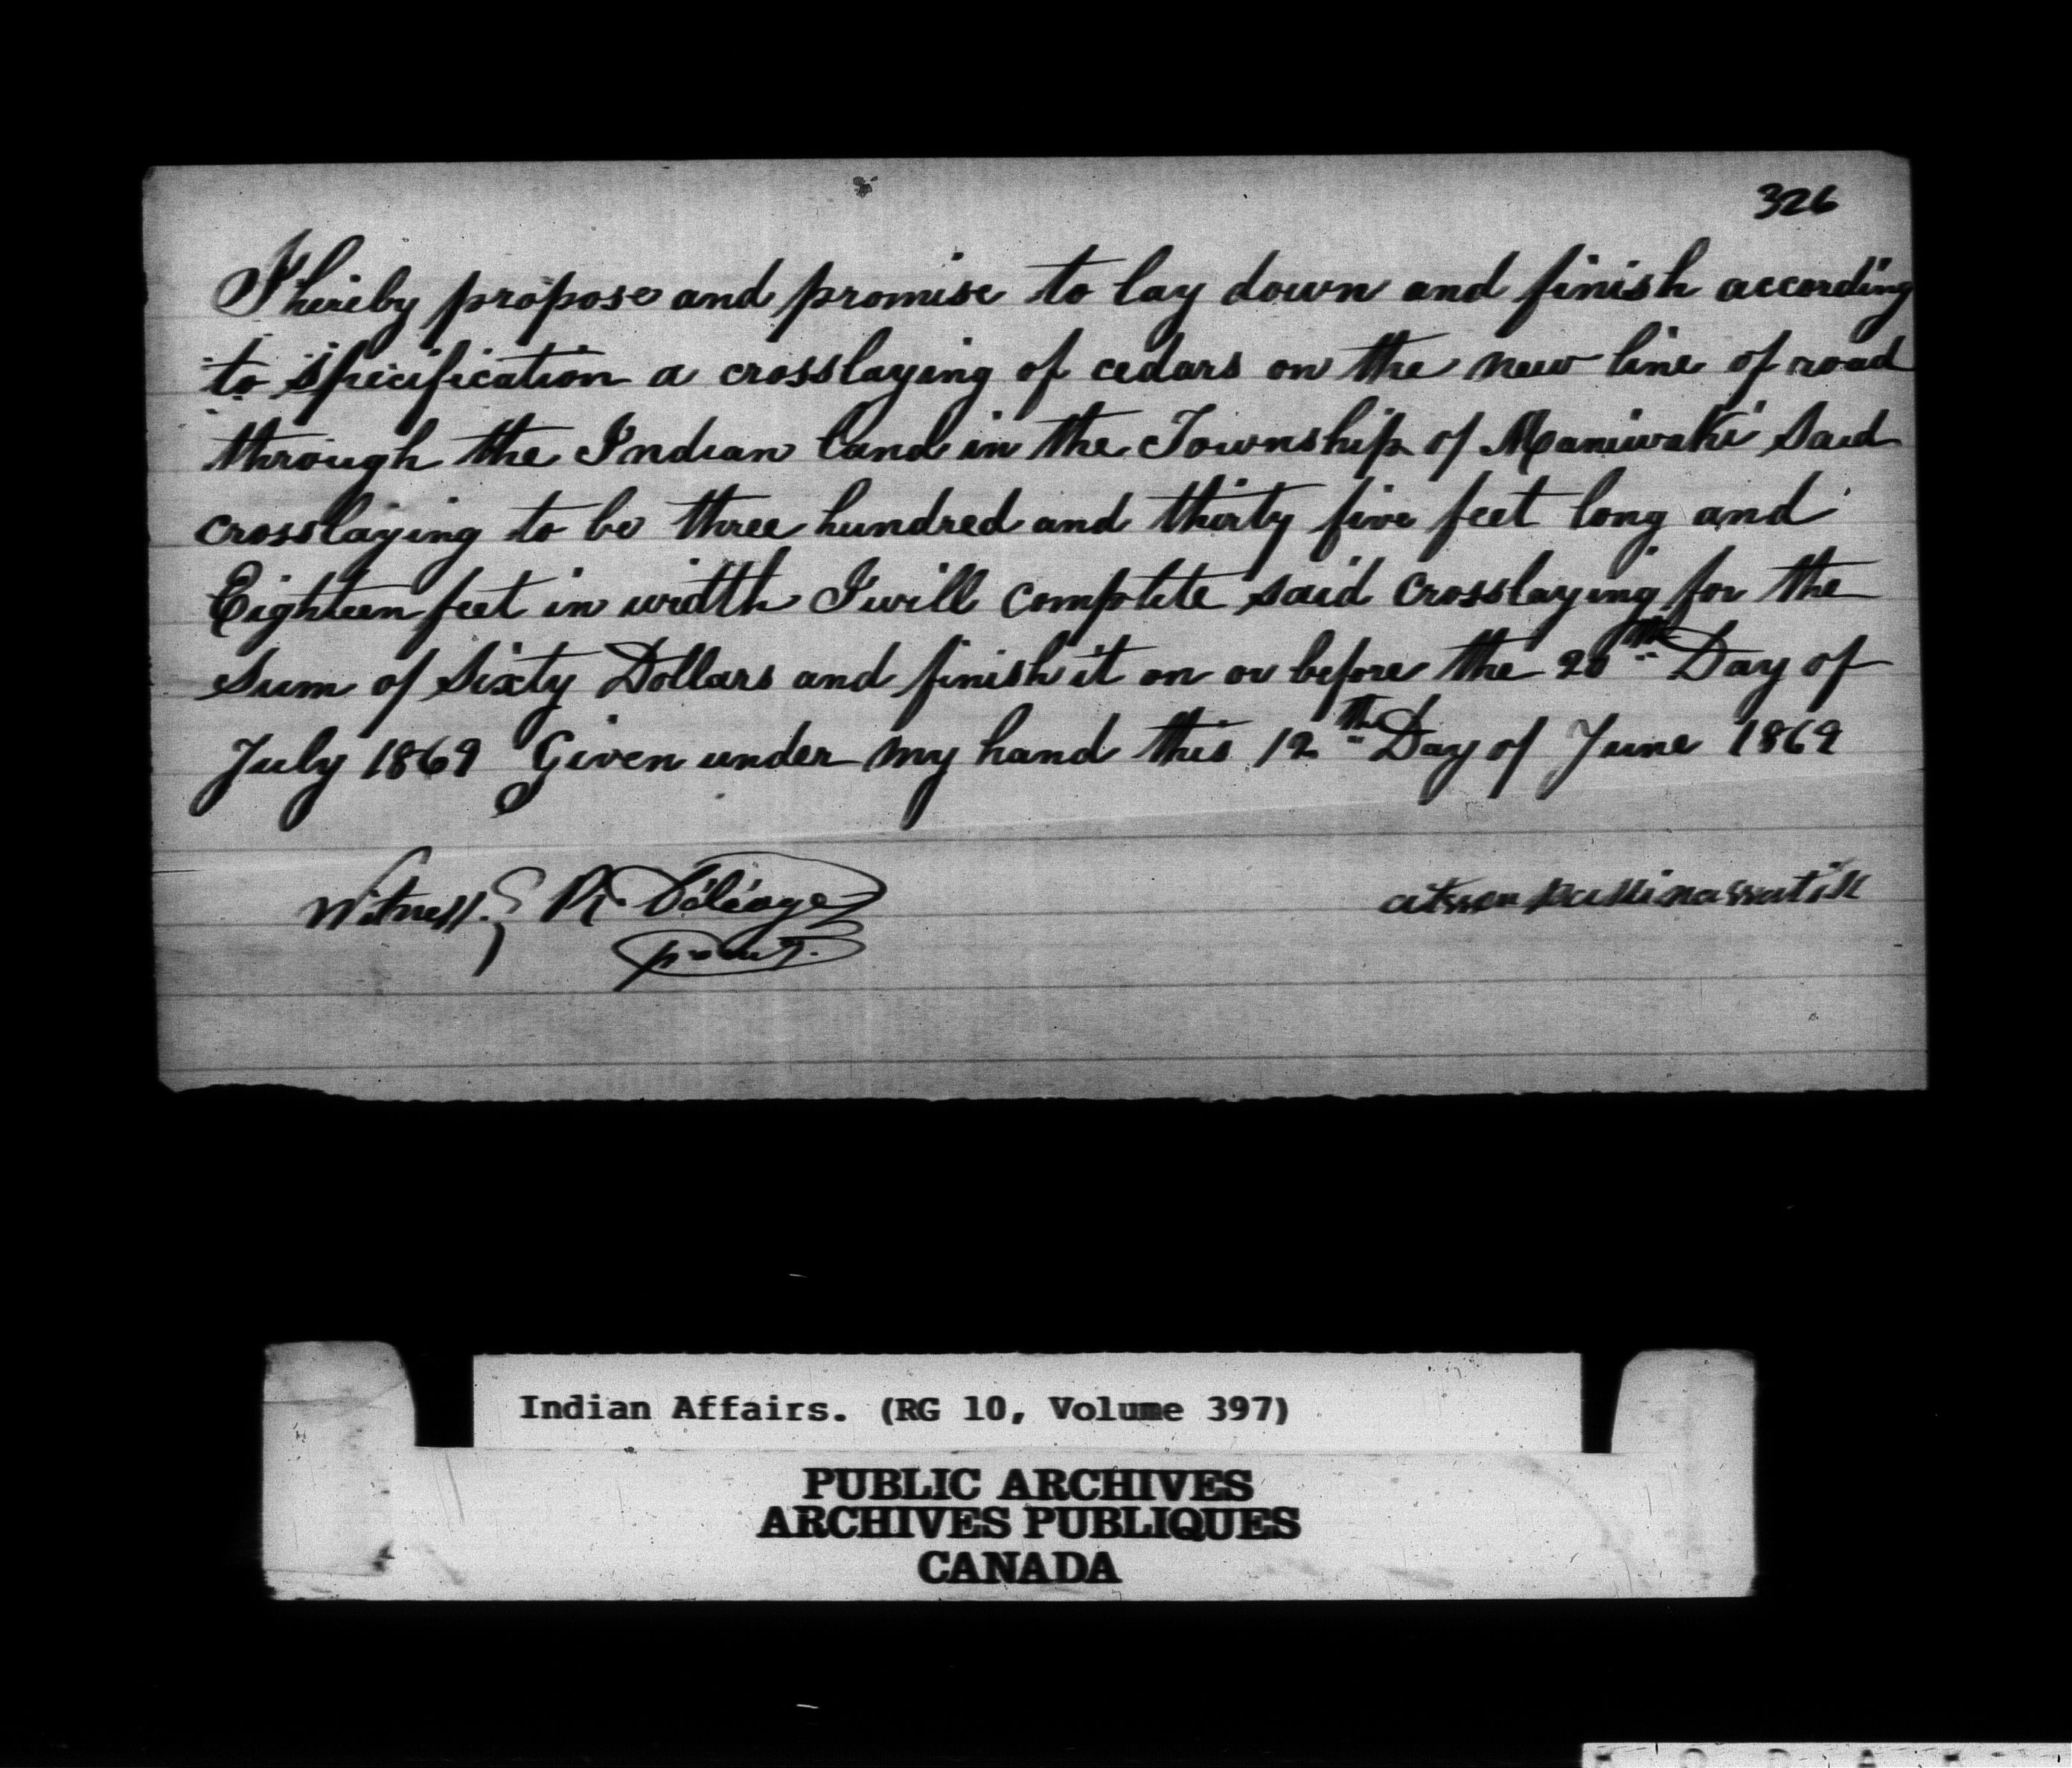 326
I hereby propose and promise to lay down and finish according
to specification a crosslaying of cedars on the new line of road
through the Indian land in the Township of Maniwaki Said
crosslaying to be three hundred and thirty five feet long and
Eighteen feet in width I will complete said crosslaying for the
Sum of Sixty Dollars and finish it on or before the 20th Day of
July 1869 Given under my hand this 12th Day of June 1869
Witness. Déléage
Indian Affairs. (RG 10, Volume 397)
PUBLIC ARCHIVES
ARCHIVES PUBLIQUES
CANADA